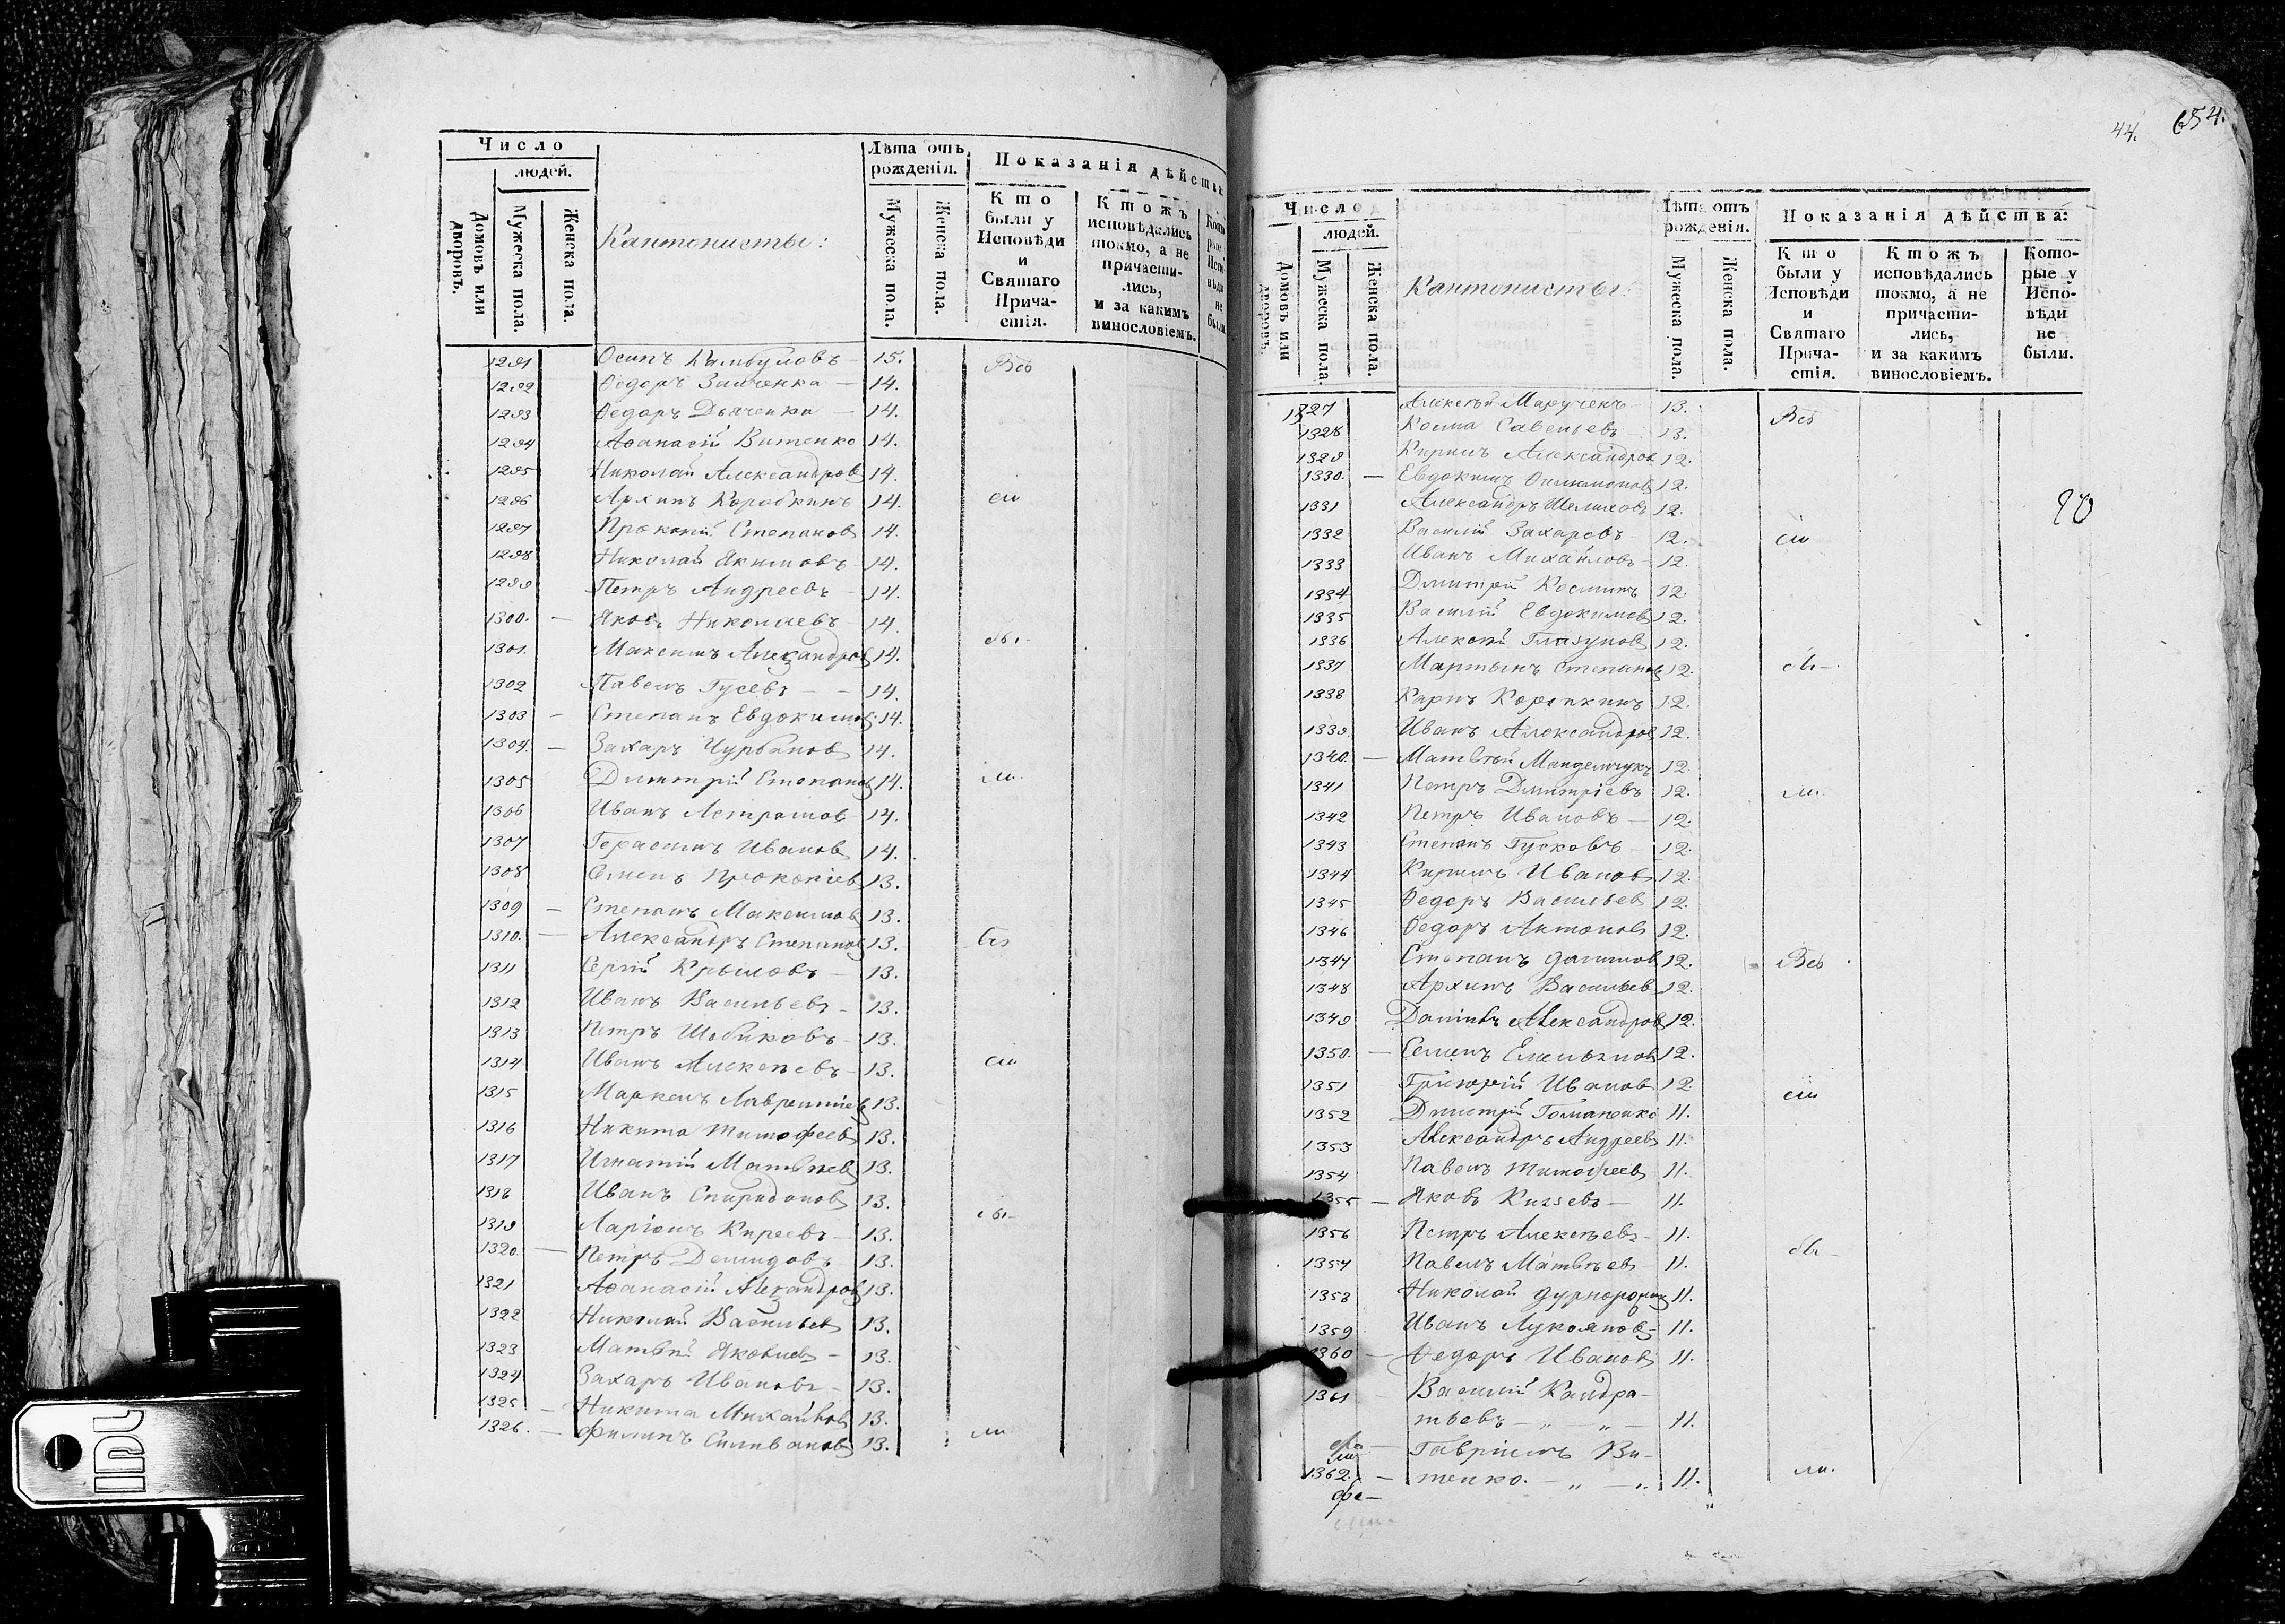 Число
людей.
Домовъ или дворовъ.
Мужеска пола.
Женска пола.
Кантонисты:
Лѣта отъ рожденія.
Мужеска пола.
Женска пола.
Показанія дѣйства
Кто были у Исповѣди и Святаго Прича-стія.
Ктожъ исповѣдались токмо, а не причасти-лись, и за какимъ винословіемъ.
1291 Осипъ 15. Всѣ
1292 Ѳедоръ 14.
1293 Ѳедоръ Дьяченки — 14.
1294 Аѳанасій Витенко 14.
1295 Николай Александров 14.
1296 Архипъ Коробкинъ 14. сіи
1297 Прокопій Степанов 14.
1298 Николай Якимовъ 14.
1299 Петръ Андреевъ — 14.
1300. — Яковъ Николаевъ — 14.
1301. Максимъ Александров 14. бы-
1302 Павелъ Гусевъ — — 14.
1303 — Степанъ Евдокимов 14.
1304. — Захаръ Чурбанов 14.
1305 Дмитрій Степанов 14. ли.
1306 Иванъ 14.
1307 Герасимъ Иванов 14.
1308 Семенъ Прокопіев 13.
1309 — Степанъ Максимов 13.
1310. — Александръ Степанов 13. Всѣ
1311 Сергій Крыловъ — 13.
1312 Иванъ Васильевъ — 13.
1313 Петръ 13.
1314 Иванъ Алексѣевъ — 13. сіи
1315 Маркелъ Лаврентіев 13.
1316 Никита Тимофеев 13.
1317 Игнатій Матвѣев 13.
1318 Иванъ Спиридонов 13.
1319 Ларіонъ Киреевъ — 13. бы-
1320. — Петръ Демидовъ 13.
1321 Аѳанасій Александров 13.
1322 Николай Васильев 13.
1323 Матвѣй Яковлев — 13.
1324 Захаръ Ивановъ — 13.
1325 — Никита Михайлов 13.
1326. — Филипъ Силиванов 13. ли
44. 654.
Число
людей.
Домовъ или дворовъ.
Мужеска пола.
Женска пола.
Кантонисты:
Лѣта отъ рожденія.
Мужеска пола.
Женска пола.
Показанія дѣйства:
Кто были у Исповѣди и Святаго Прича-стія.
Ктожъ исповѣдались токмо, а не причасти-лись, и за какимъ винословіемъ.
Кото-рые у Испо-вѣди не были.
1327 Алексѣй Марученъ — 13. Всѣ
1328 Косма Савельевъ 13.
1329 Кирилъ Александров 12.
1330. — Евдокимъ 12.
1331 Александръ Шелиховъ 12.
1332 Василій Захаровъ — 12. сіи
1333 Иванъ Михайловъ — 12.
1334 Дмитрій Косминъ 12.
1335 Василій Евдокимов 12.
1336 Алексѣй Глазунов 12.
1337 Мартынъ Степанов 12. бы-
1338 Карпъ 12.
1339. Иванъ Александров 12.
1340. — Матвѣй 12.
1341 Петръ Дмитріевъ 12. ли.
1342 Петръ Ивановъ — 12.
1343 Степанъ Гусковъ — 12.
1344 Кирилъ Иванов 12.
1345 Ѳедоръ Васильев 12.
1346 Ѳедоръ Антонов 12.
1347 Степанъ 12. Всѣ
1348 Архипъ Васильев 12.
1349 Данилъ Александров 12.
1350. — Семенъ Емельянов 12.
1351 Григорій Иванов 12. сіи
1352 Дмитрій 11.
1353 Александръ Андреев 11.
1354 Павелъ Тимофеев 11.
1355 — Яковъ Князевъ — 11.
1356 Петръ Алексѣевъ — 11. бы-
1357 Павелъ Матвѣев 11.
1358 Николай 11.
1359 Иванъ Лукоянов — 11.
1360 — Ѳедоръ Иванов 11.
1361 — Василій Кандра-
тьевъ — „ — „ — 11.
Гавріилъ Ви-
1362. — тенко. — „ — „ 11. ли.